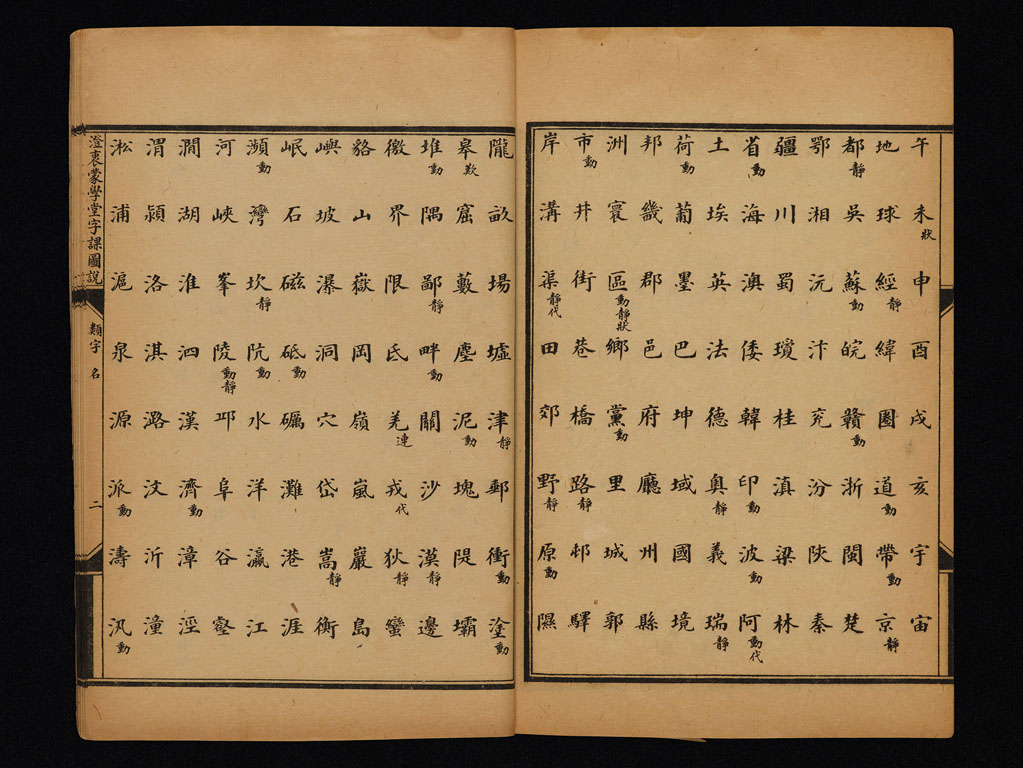 午未狀申酉戌亥宇宙
地球經靜緯圈道動帶動京靜
都靜吳蘇動皖贛動浙閩楚
鄂湘沅汴兖汾陝秦
疆川蜀瓊桂滇梁林
省動海澳倭韓印動波動阿動代
土埃英法德奧靜義瑞靜
荷動葡墨巴坤域國境
邦畿郡邑府廳州縣
洲寰區動靜狀鄉黨動里城郭
市動井街巷橋路靜邨驛
岸溝渠靜代田郊野靜原動隰
隴畝場墟津靜郵衝動塗動
皋歎窟藪塵泥動塊隄壩
堆動隅鄙靜畔動關沙漠靜邊
徼界限氐羌連戎代狄靜蠻
貉山嶽岡嶺嵐巖島
嶼坡瀑洞穴岱嵩靜衡
岷石磁砥動礪灘港涯
瀕動灣坎靜阬動水洋瀛江
河峽峯陵動靜邛阜谷壑
澗湖淮泗漢濟動漳涇
渭潁洛淇潞汶沂潼
淞浦滬泉源派動濤汎動
澄衷蒙學堂字課圖說
類字 名
二